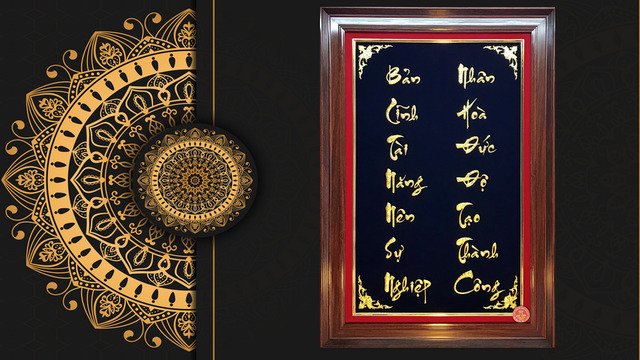 Bản
Lĩnh
Tài
Năng
Nên
Sự
Nghiệp
Nhân
Hoà
Đức
Độ
Tạo
Thành
Công